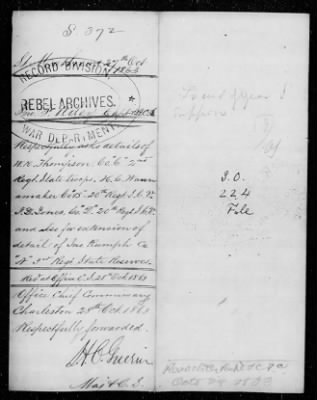 S. 372
27th Oct
1863
RECORD DIVISION
REBEL ARCHIVES.
WAR DEPARTMENT
Respectfully asks details of
W. R. Thompson, Co "C" 2nd
Regt State Troops, H. C. Wanna-
maker Co "B" 20th Regt S. C. V.
J. D. Jones, Co. "D" 20th Regt S. C. V.
and also for extension of
detail of Jac Rumph Co
"A" 3rd Regt State Reserves.
Recd at Office C.S. 28th Oct 1863
Office Chief Commissary
Charleston 28th Oct 1863
Respectfully forwarded.
H. C. Guerin
Maj & C. S.
S.O.
224
File
Oct 29 1863